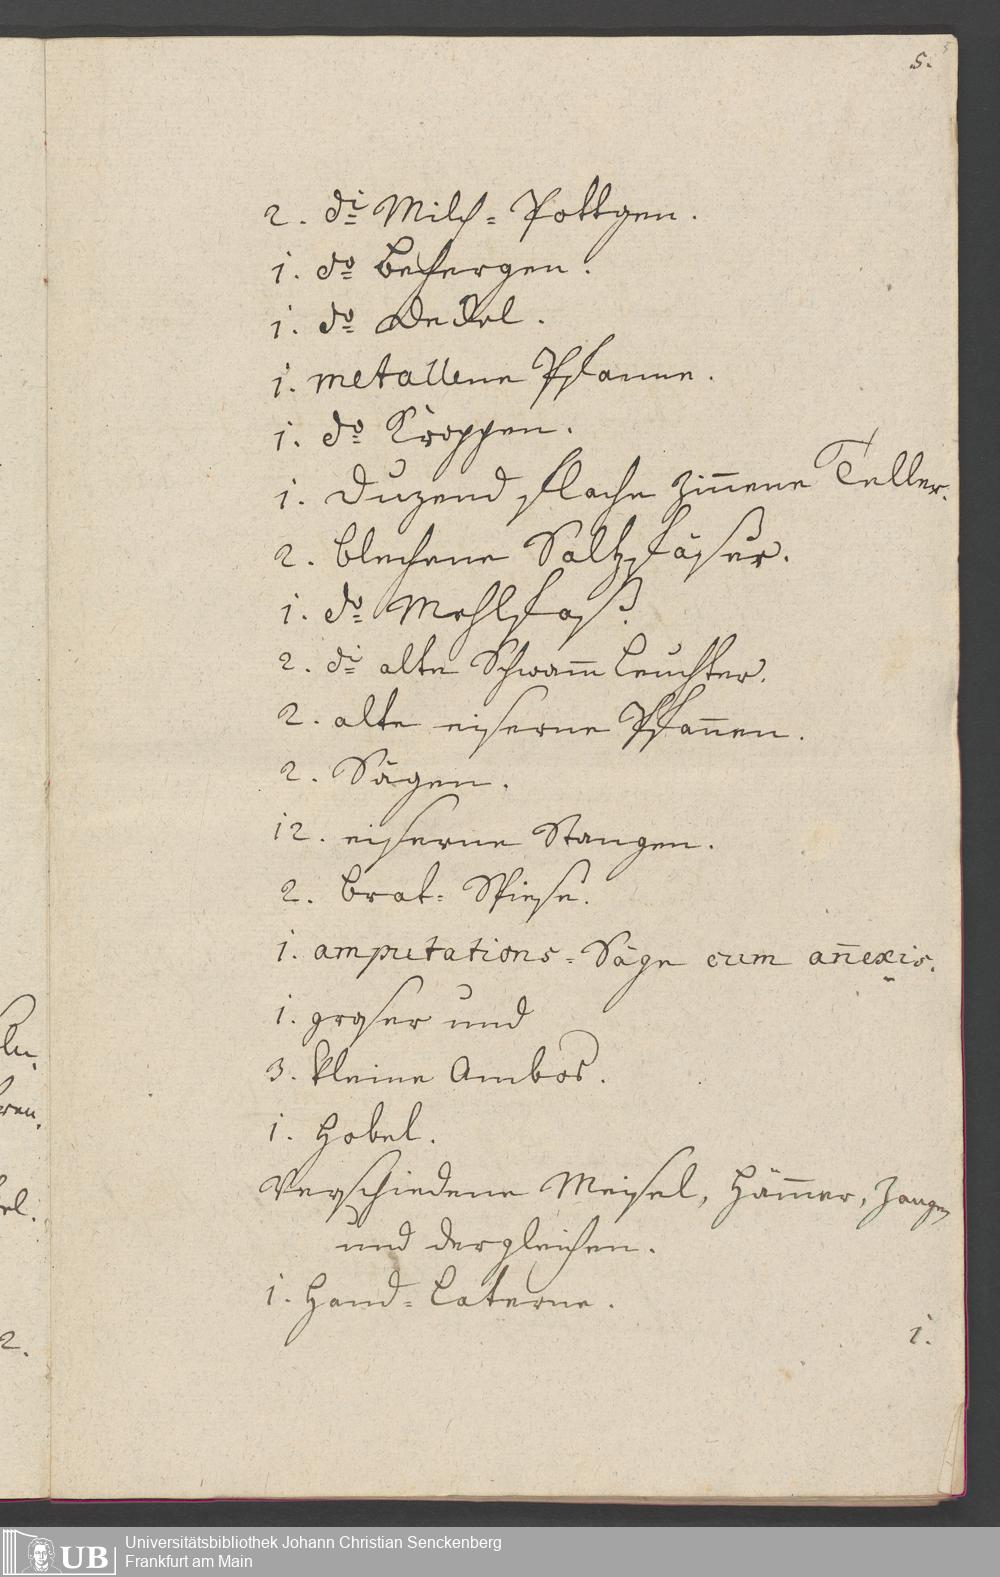 5.
2. di Milch- Pottgen.
1. do Bechergen.
1. do Deckel.
1. metallene Pfanne.
1. do Kroppen.
1. Duzend flache zin̄ene Teller.
2. blechene Saltzfäßer.
1. do Mehlfaß.
2. di alte Schwam̄ Leuchter.
2. alte eiserne Pfan̄en.
2. Sägen.
12. eiserne Stangen.
2. Brat- Spiese.
1. amputations- Säge cum an̄exis.
1. groser und
3. kleine Ambos.
1. Hobel.
Verschiedene Meisel, Häm̄er, Zangen
und dergleichen.
1. Hand- Laterne.
1.
ln.
ren.
el.
2.
UB Universitätsbibliothek Johann Christian Senckenberg
Frankfurt am Main